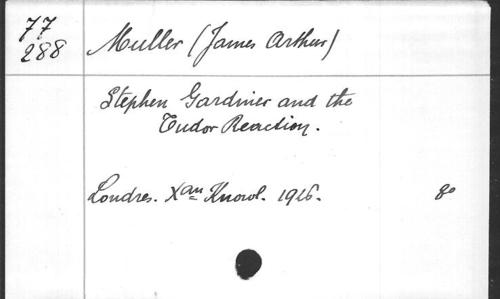 77
288
Muller (James Arthur)
Stephen Gardiner and the
Tudor Reaction.
Londres. Xan Knowl. 1926. 8o